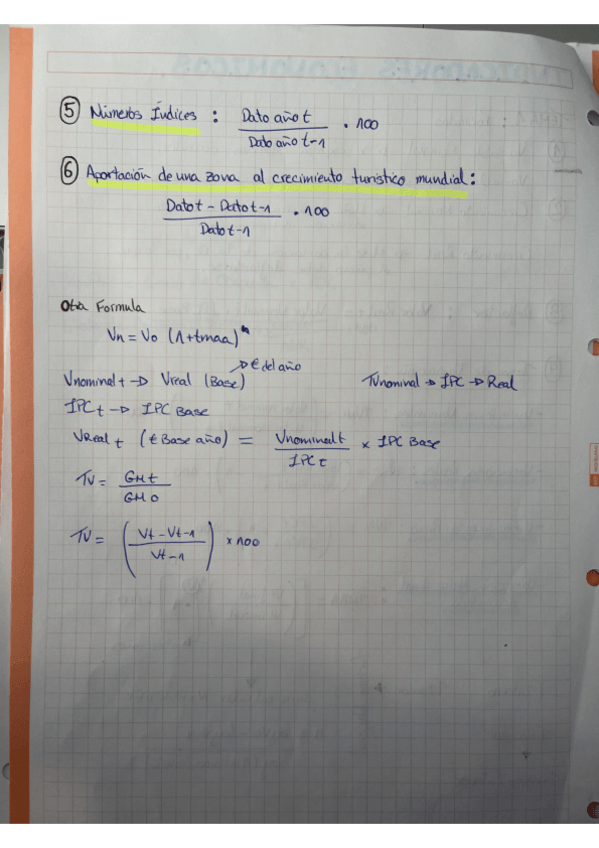 ⑤ Números Índices : Dato año t / Dato año t-1 · 100
⑥ Aportación de una zona al crecimiento turístico mundial:
Dato t - Dato t-1 / Dato t-1 · 100
Otra Formula
Vn = Vo (1+tmaa)ⁿ
→ € del año
Vnominal t → Vreal (Base) TVnominal → IPC → Real
IPC t → IPC Base
VReal t (€ Base año) = Vnominal t / IPC t × IPC Base
TV = GMt / GMo
TV = (Vt - Vt-1 / Vt-1) × 100